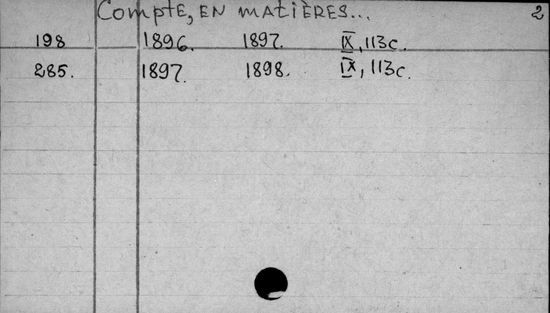 Compte, EN matières... 2
198 1896. 1897. IX, 113c.
285. 1897. 1898. IX, 113c.